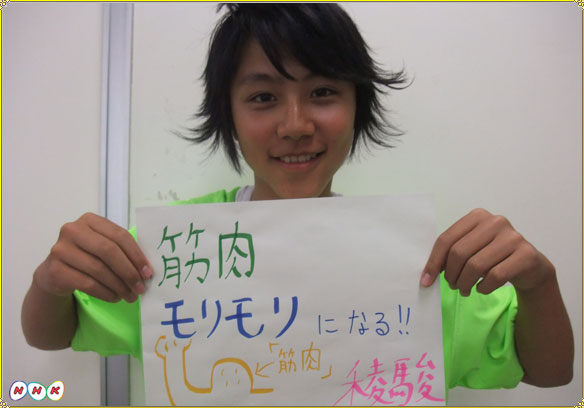 筋肉
モリモリになる!!
「筋肉」
稜駿
NHK